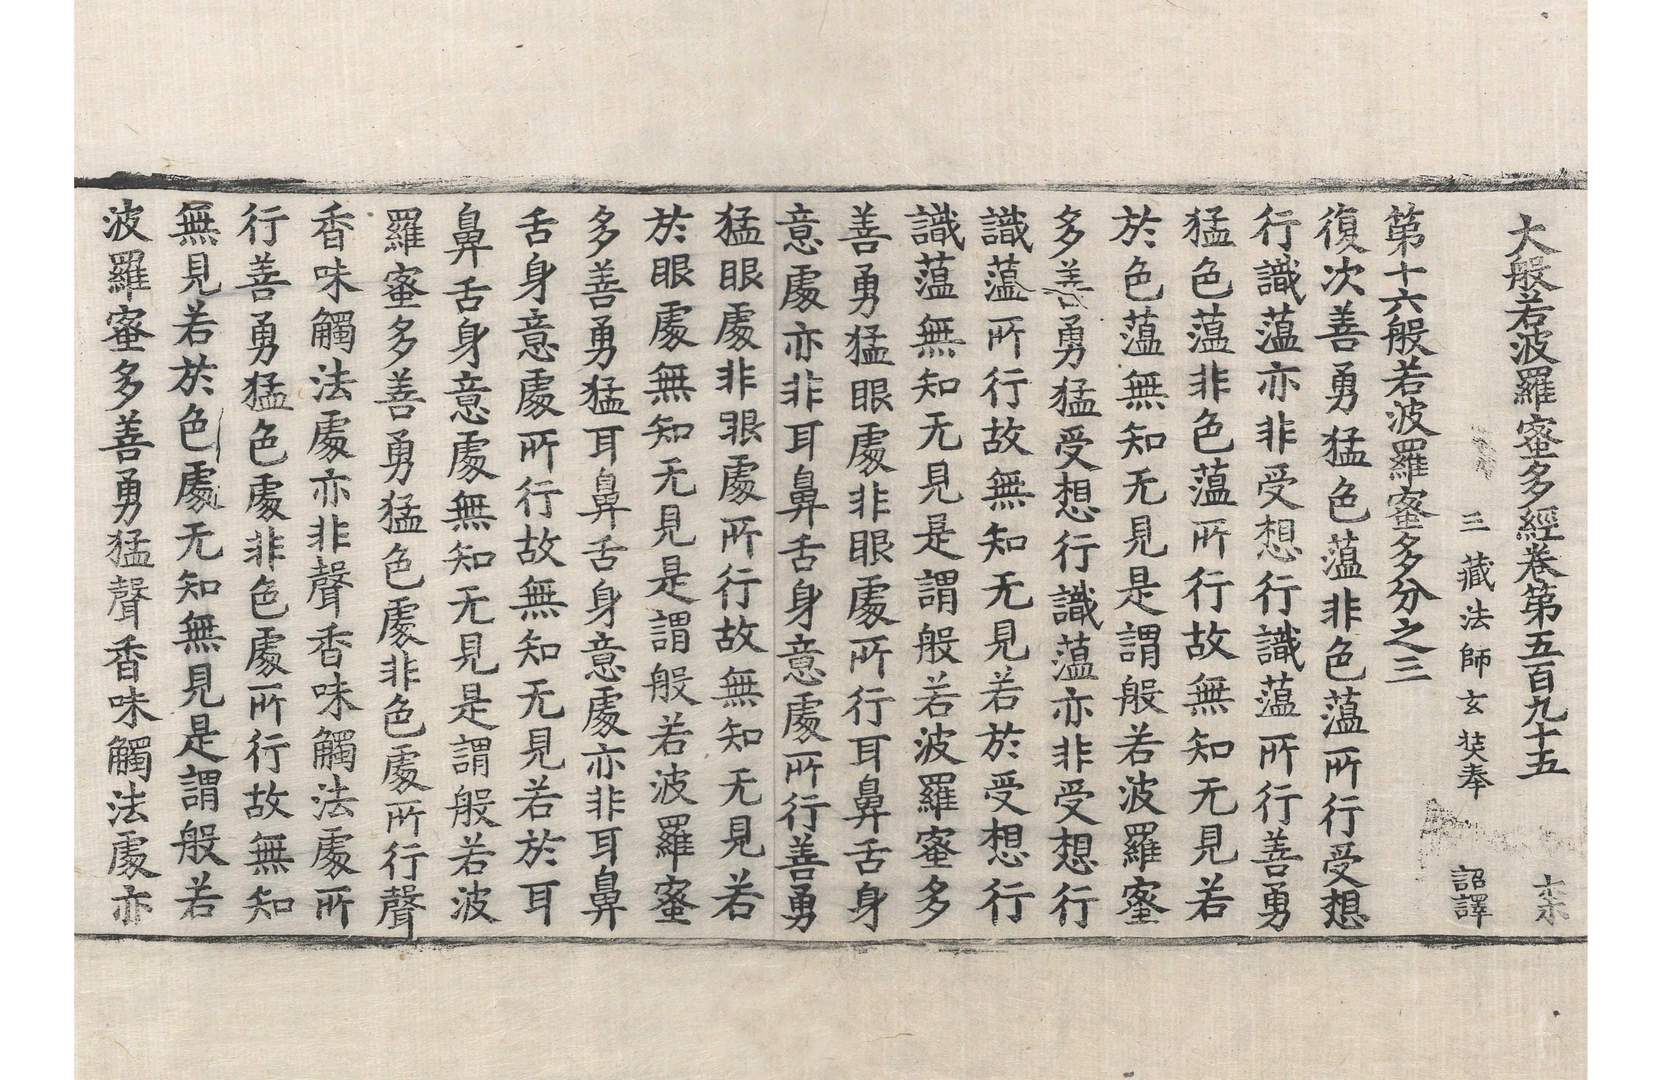 大般若波羅蜜多經卷第五百九十五 柰
三藏法師玄奘奉 詔譯
第十六般若波羅蜜多分之三
復次善勇猛色薀非色薀所行受想
行識薀亦非受想行識薀所行善勇
猛色薀非色薀所行故無知无見若
於色薀無知无見是謂般若波羅蜜
多善勇猛受想行識薀亦非受想行
識薀所行故無知无見若於受想行
識薀無知无見是謂般若波羅蜜多
善勇猛眼處非眼處所行耳鼻舌身
意處亦非耳鼻舌身意處所行善勇
猛眼處非眼處所行故無知无見若
於眼處無知无見是謂般若波羅蜜
多善勇猛耳鼻舌身意處亦非耳鼻
舌身意處所行故無知无見若於耳
鼻舌身意處無知无見是謂般若波
羅蜜多善勇猛色處非色處所行聲
香味觸法處亦非聲香味觸法處所
行善勇猛色處非色處所行故無知
無見若於色處无知無見是謂般若
波羅蜜多善勇猛聲香味觸法處亦